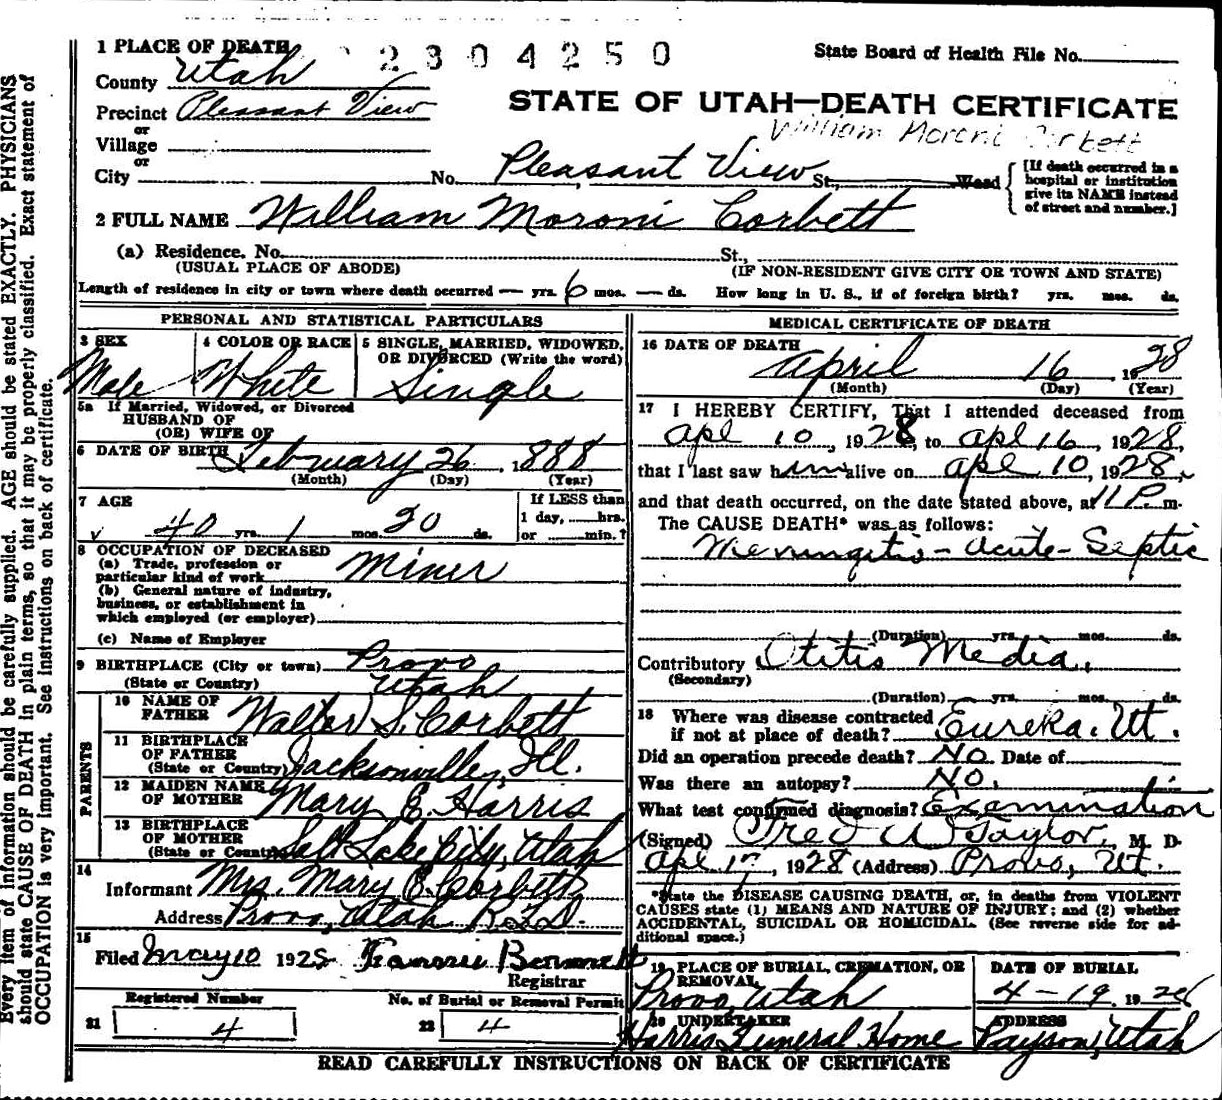 1 PLACE OF DEATH 2304250 State Board of Health File No.
County Utah
STATE OF UTAH—DEATH CERTIFICATE
Precinct Pleasant View
William Moroni Corbett
or
Village
or
City No. Pleasant View St., Ward
[If death occurred in a
hospital or institution
give its NAME instead
of street and number.]
2 FULL NAME William Moroni Corbett
(a) Residence. No. St.,
(USUAL PLACE OF ABODE) (IF NON-RESIDENT GIVE CITY OR TOWN AND STATE)
Length of residence in city or town where death occurred — yrs. 6 mos. — ds. How long in U. S., if of foreign birth? yrs. mos. ds.
PERSONAL AND STATISTICAL PARTICULARS
3 SEX 4 COLOR OR RACE 5 SINGLE, MARRIED, WIDOWED,
OR DIVORCED (Write the word)
Male White Single
5a If Married, Widowed, or Divorced
HUSBAND OF
(OR) WIFE OF
6 DATE OF BIRTH February 26, 1888
(Month) (Day) (Year)
7 AGE If LESS than
1 day, hrs.
40 yrs. 1 mos. 20 ds. or min.?
8 OCCUPATION OF DECEASED
(a) Trade, profession or
particular kind of work Miner
(b) General nature of industry,
business, or establishment in
which employed (or employer)
(c) Name of Employer
9 BIRTHPLACE (City or town) Provo
(State or Country) Utah
PARENTS
10 NAME OF
FATHER Walter S. Corbett
11 BIRTHPLACE
OF FATHER
(State or Country) Jacksonville, Ill.
12 MAIDEN NAME
OF MOTHER Mary E. Harris
13 BIRTHPLACE
OF MOTHER
(State or Country) Salt Lake City, Utah
14
Informant Mrs. Mary E. Corbett
Address Provo, Utah R.F.D.
15
Filed May 10 1928 Bennett
Registrar
Registered Number No. of Burial or Removal Permit
21 4 22 4
MEDICAL CERTIFICATE OF DEATH
16 DATE OF DEATH
April 16, 1928
(Month) (Day) (Year)
17 I HEREBY CERTIFY, That I attended deceased from
Apl 10, 1928, to Apl 16, 1928,
that I last saw him alive on Apl 10, 1928,
and that death occurred, on the date stated above, at 11 P. m.
The CAUSE DEATH* was as follows:
Meningitis - Acute - Septic
(Duration) yrs. mos. ds.
Contributory Otitis Media,
(Secondary)
(Duration) yrs. mos. ds.
18 Where was disease contracted
if not at place of death? Eureka. Ut.
Did an operation precede death? No. Date of
Was there an autopsy? No.
What test confirmed diagnosis? Examination
(Signed) Fred W Taylor, M. D.
Apl 17, 1928 (Address) Provo, Ut.
*State the DISEASE CAUSING DEATH, or, in deaths from VIOLENT
CAUSES state (1) MEANS AND NATURE OF INJURY; and (2) whether
ACCIDENTAL, SUICIDAL OR HOMICIDAL. (See reverse side for ad-
ditional space.)
19 PLACE OF BURIAL, CREMATION, OR
REMOVAL DATE OF BURIAL
Provo, Utah 4-19 1928
20 UNDERTAKER ADDRESS
Harris Funeral Home Payson, Utah
READ CAREFULLY INSTRUCTIONS ON BACK OF CERTIFICATE
Every item of information should be carefully supplied. AGE should be stated EXACTLY. PHYSICIANS
should state CAUSE OF DEATH in plain terms, so that it may be properly classified. Exact statement of
OCCUPATION is very important. See instructions on back of certificate.